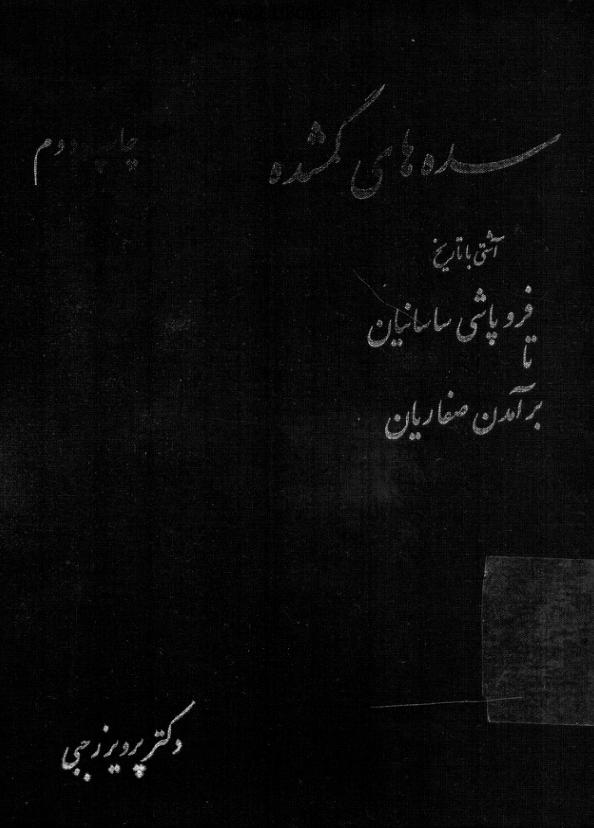 سده های گمشده
چاپ دوم
آشتی با تاریخ
فروپاشی ساسانیان
تا
برآمدن صفاریان
دکتر پرویز رجبی